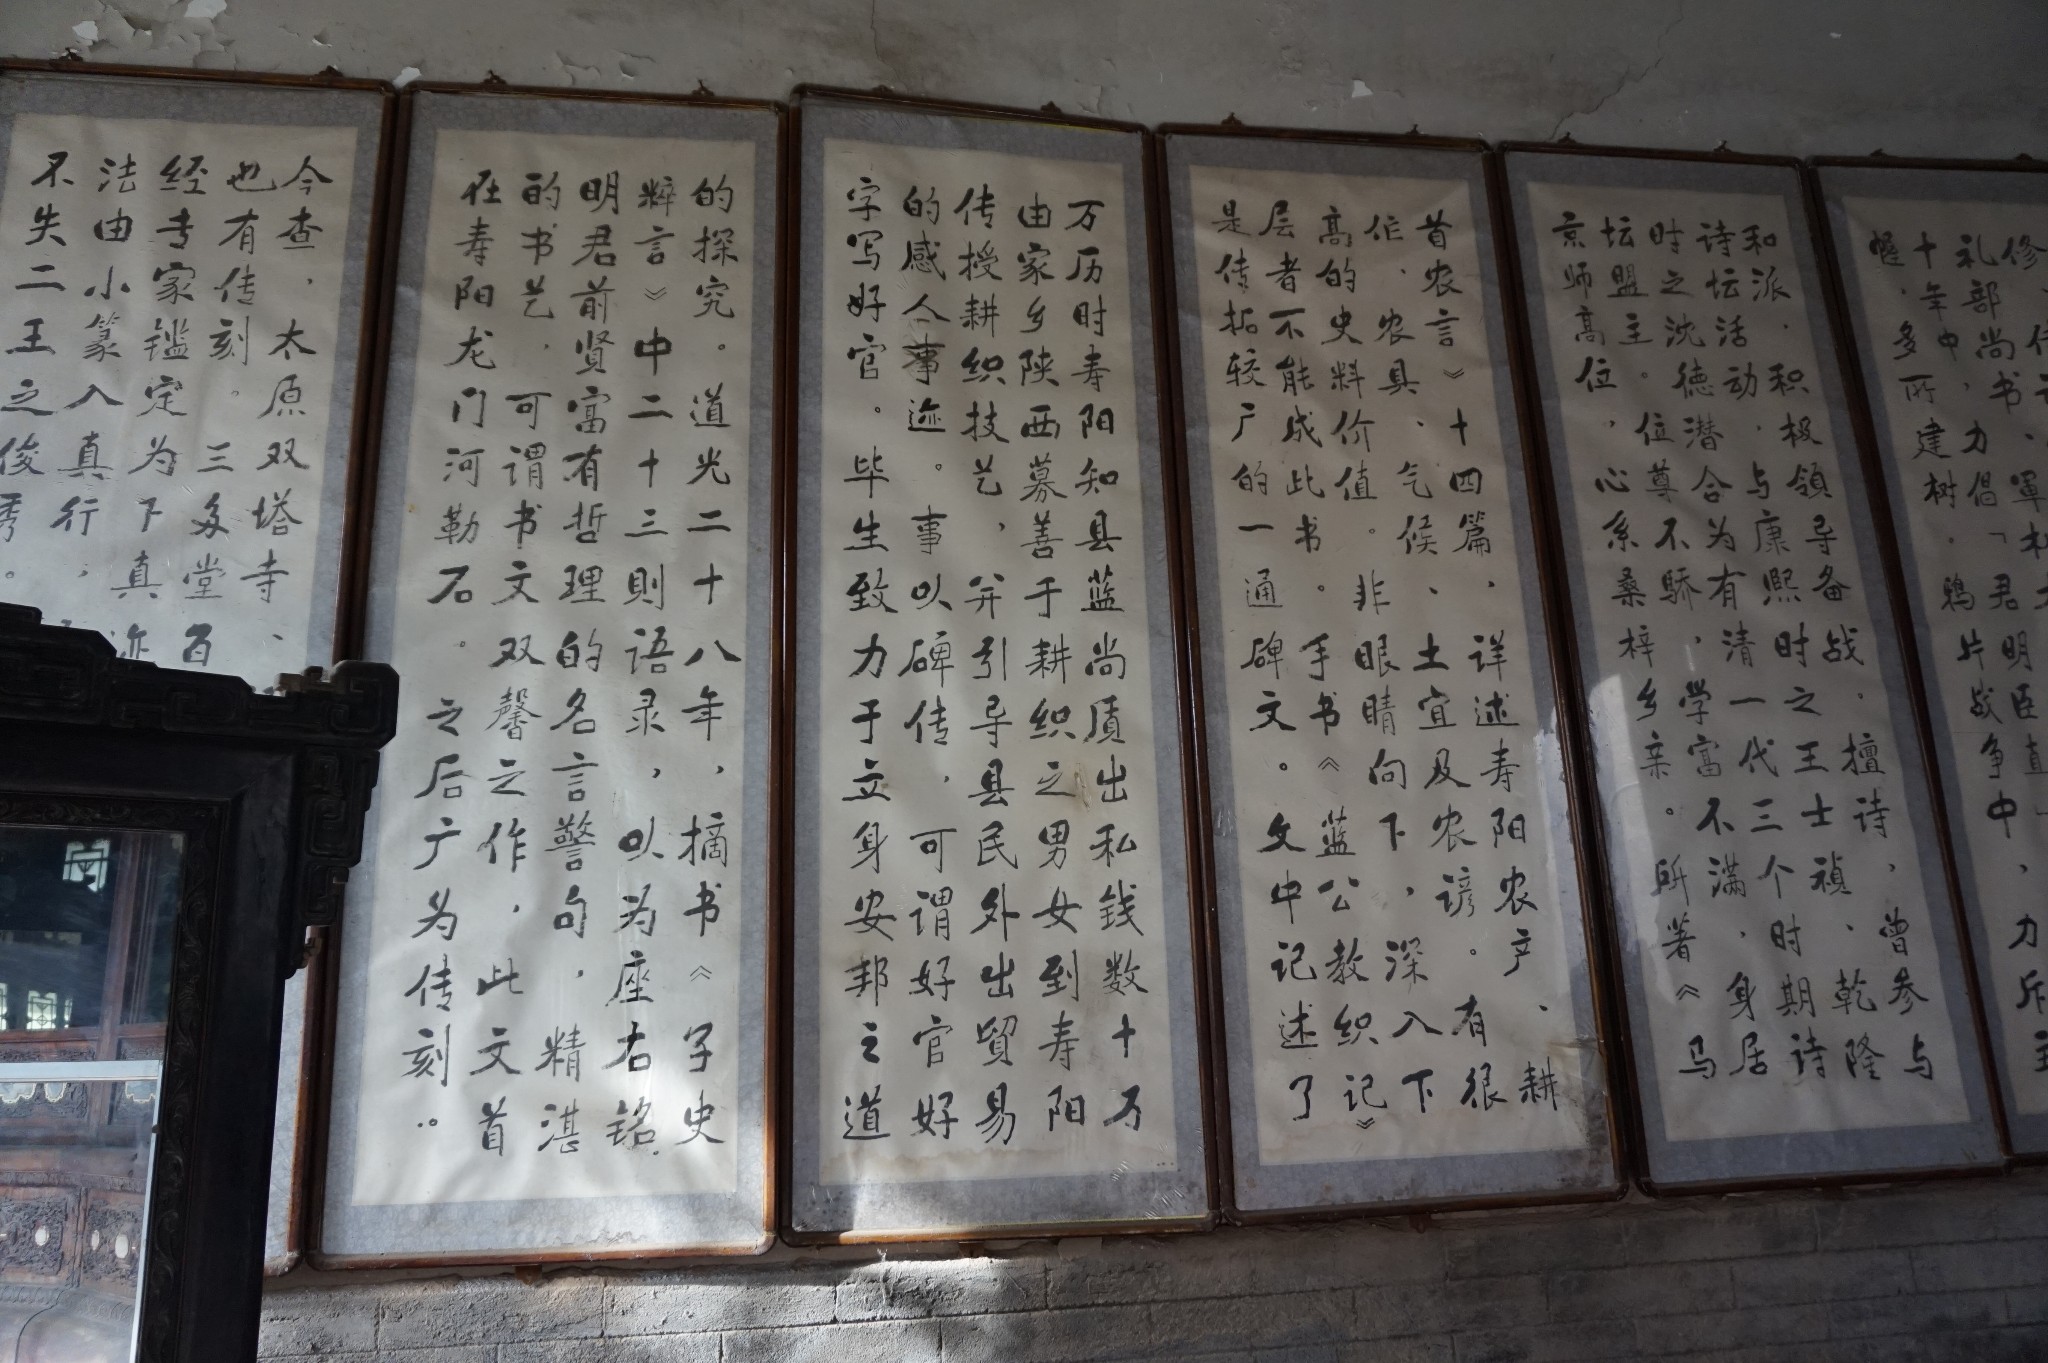 礼部尚书，力倡「君明臣直」
十年中，鸦片战争中，力斥
幄，多所建树。
和派，积极领导备战。擅诗，曾参与
诗坛活动，与康熙时之王士祯、乾隆
时之沈德潜合为有清一代三个时期诗
坛盟主。位尊不骄，学富不满，身居
京师高位，心系桑梓乡亲。所著《马
首农言》十四篇，详述寿阳农产、耕
作、农具、气候、土宜及农谚。有很
高的史料价值。非眼睛向下，深入下
层者不能成此书。手书《蓝公教织记》
是传拓较广的一通碑文。文中记述了
万历时寿阳知县蓝尚质出私钱数十万
由家乡陕西募善于耕织之男女到寿阳
传授耕织技艺，并引导县民外出贸易
的感人事迹。事以碑传，可谓好官好
字写好官。毕生致力于立身安邦之道
的探究。道光二十八年，摘书《子史
粹言》中二十三则语录，以为座右铭。
明君前贤富有哲理的名言警句，精湛
的书艺，可谓书文双馨之作，此文首
在寿阳龙门河勒石。之后广为传刻。
今查，太原双塔寺、
也有传刻。三多堂百
经专家鉴定为下真迹
法由小篆入真行，
不失二王之俊秀。